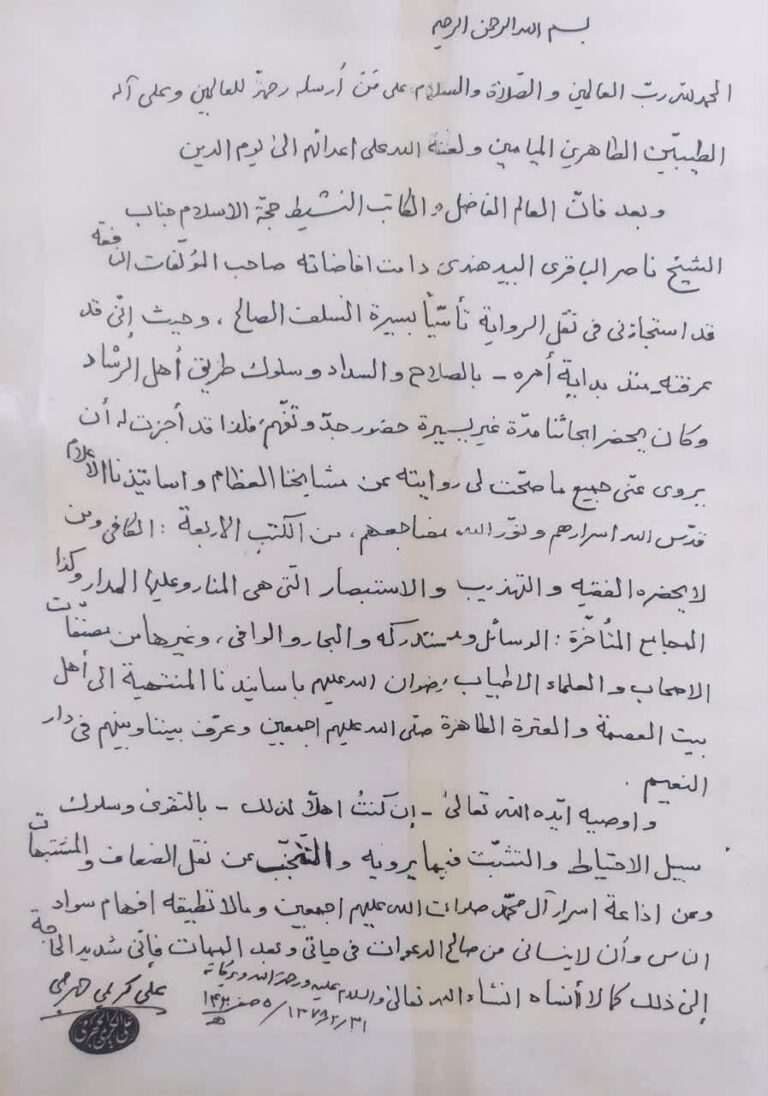 بسم الله الرحمن الرحیم
الحمد لله ربّ العالمین والصّلاة والسلام علی مَنْ أرسله رحمةً للعالمین وعلی آله
الطیبیّن الطاهرین المیامین ولعنة الله علی اعدائهم الیٰ یوم الدین
وبعد فانّ العالم الفاضل والکاتب النشیط حجّة الاسلام جناب
الشیخ ناصر الباقری البیدهندی دامت افاضاته صاحب المؤلّفات النافعة
قد استجازنی فی نقل الروایة تأسّیاً بسیرة السلف الصالح، وحیث إنّی قد
عرفته - منذ بدایة أمره - بالصلاح والسداد وسلوک طریق أهل الرشاد
وکان یحضر ابحاثنا مدّة غیر یسیرة حضور جدّ وتفهّم، فلذا قد أجزت له أن
یروی عنّی جمیع ما صحّت لی روایته عن مشایخنا العظام واساتیذنا الاعلام
قدّس الله اسرارهم ونوّر الله مضاجعهم، من الکتب الاربعة: الکافی ومن
لا یحضره الفقیه والتهذیب والاستبصار الّتی هی المنار وعلیها المدار وکذا
المجامع المتأخّرة: الوسائل ومستدرکه والبحار والوافی، وغیرها من مصنّفات
الاصحاب والعلماء الاطیاب رضوان الله علیهم باسانیدنا المنتهیة الی أهل
بیت العصمة والعترة الطاهرة صلّی الله علیهم اجمعین وعرّف بیننا وبینهم فی دار
النعیم.
واوصیه ایّده الله تعالیٰ - إن کنتُ اهلاً لذلک - بالتقویٰ وسلوک
سبیل الاحتیاط والتثبّت فیما یرویه والتجنّب عن نقل الضعاف والمشتبهات
وعن اذاعة اسرار آل محمّد صلوات الله علیهم اجمعین وما لا تطیقه افهام سواد
الناس وأن لا ینسانی من صالح الدعوات فی حیاتی وبعد الممات فإنّی شدید الحاجة
إلی ذلک کما لا أنساه انشاء الله تعالیٰ والسلام علیه ورحمة الله وبرکاته
۵ صفر ۱۴۲۰ هـ / ۱۳۷۸/۲/۳۱
علی کریمی جهرمی